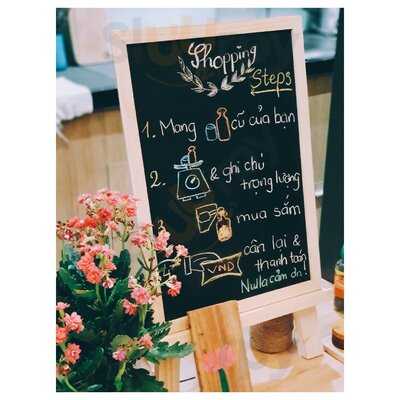 Shopping
Steps
1. Mang cũ của bạn
2. & ghi chú
trọng lượng
mua sắm
cân lại &
thanh toán
VND
Nulla cảm ơn!